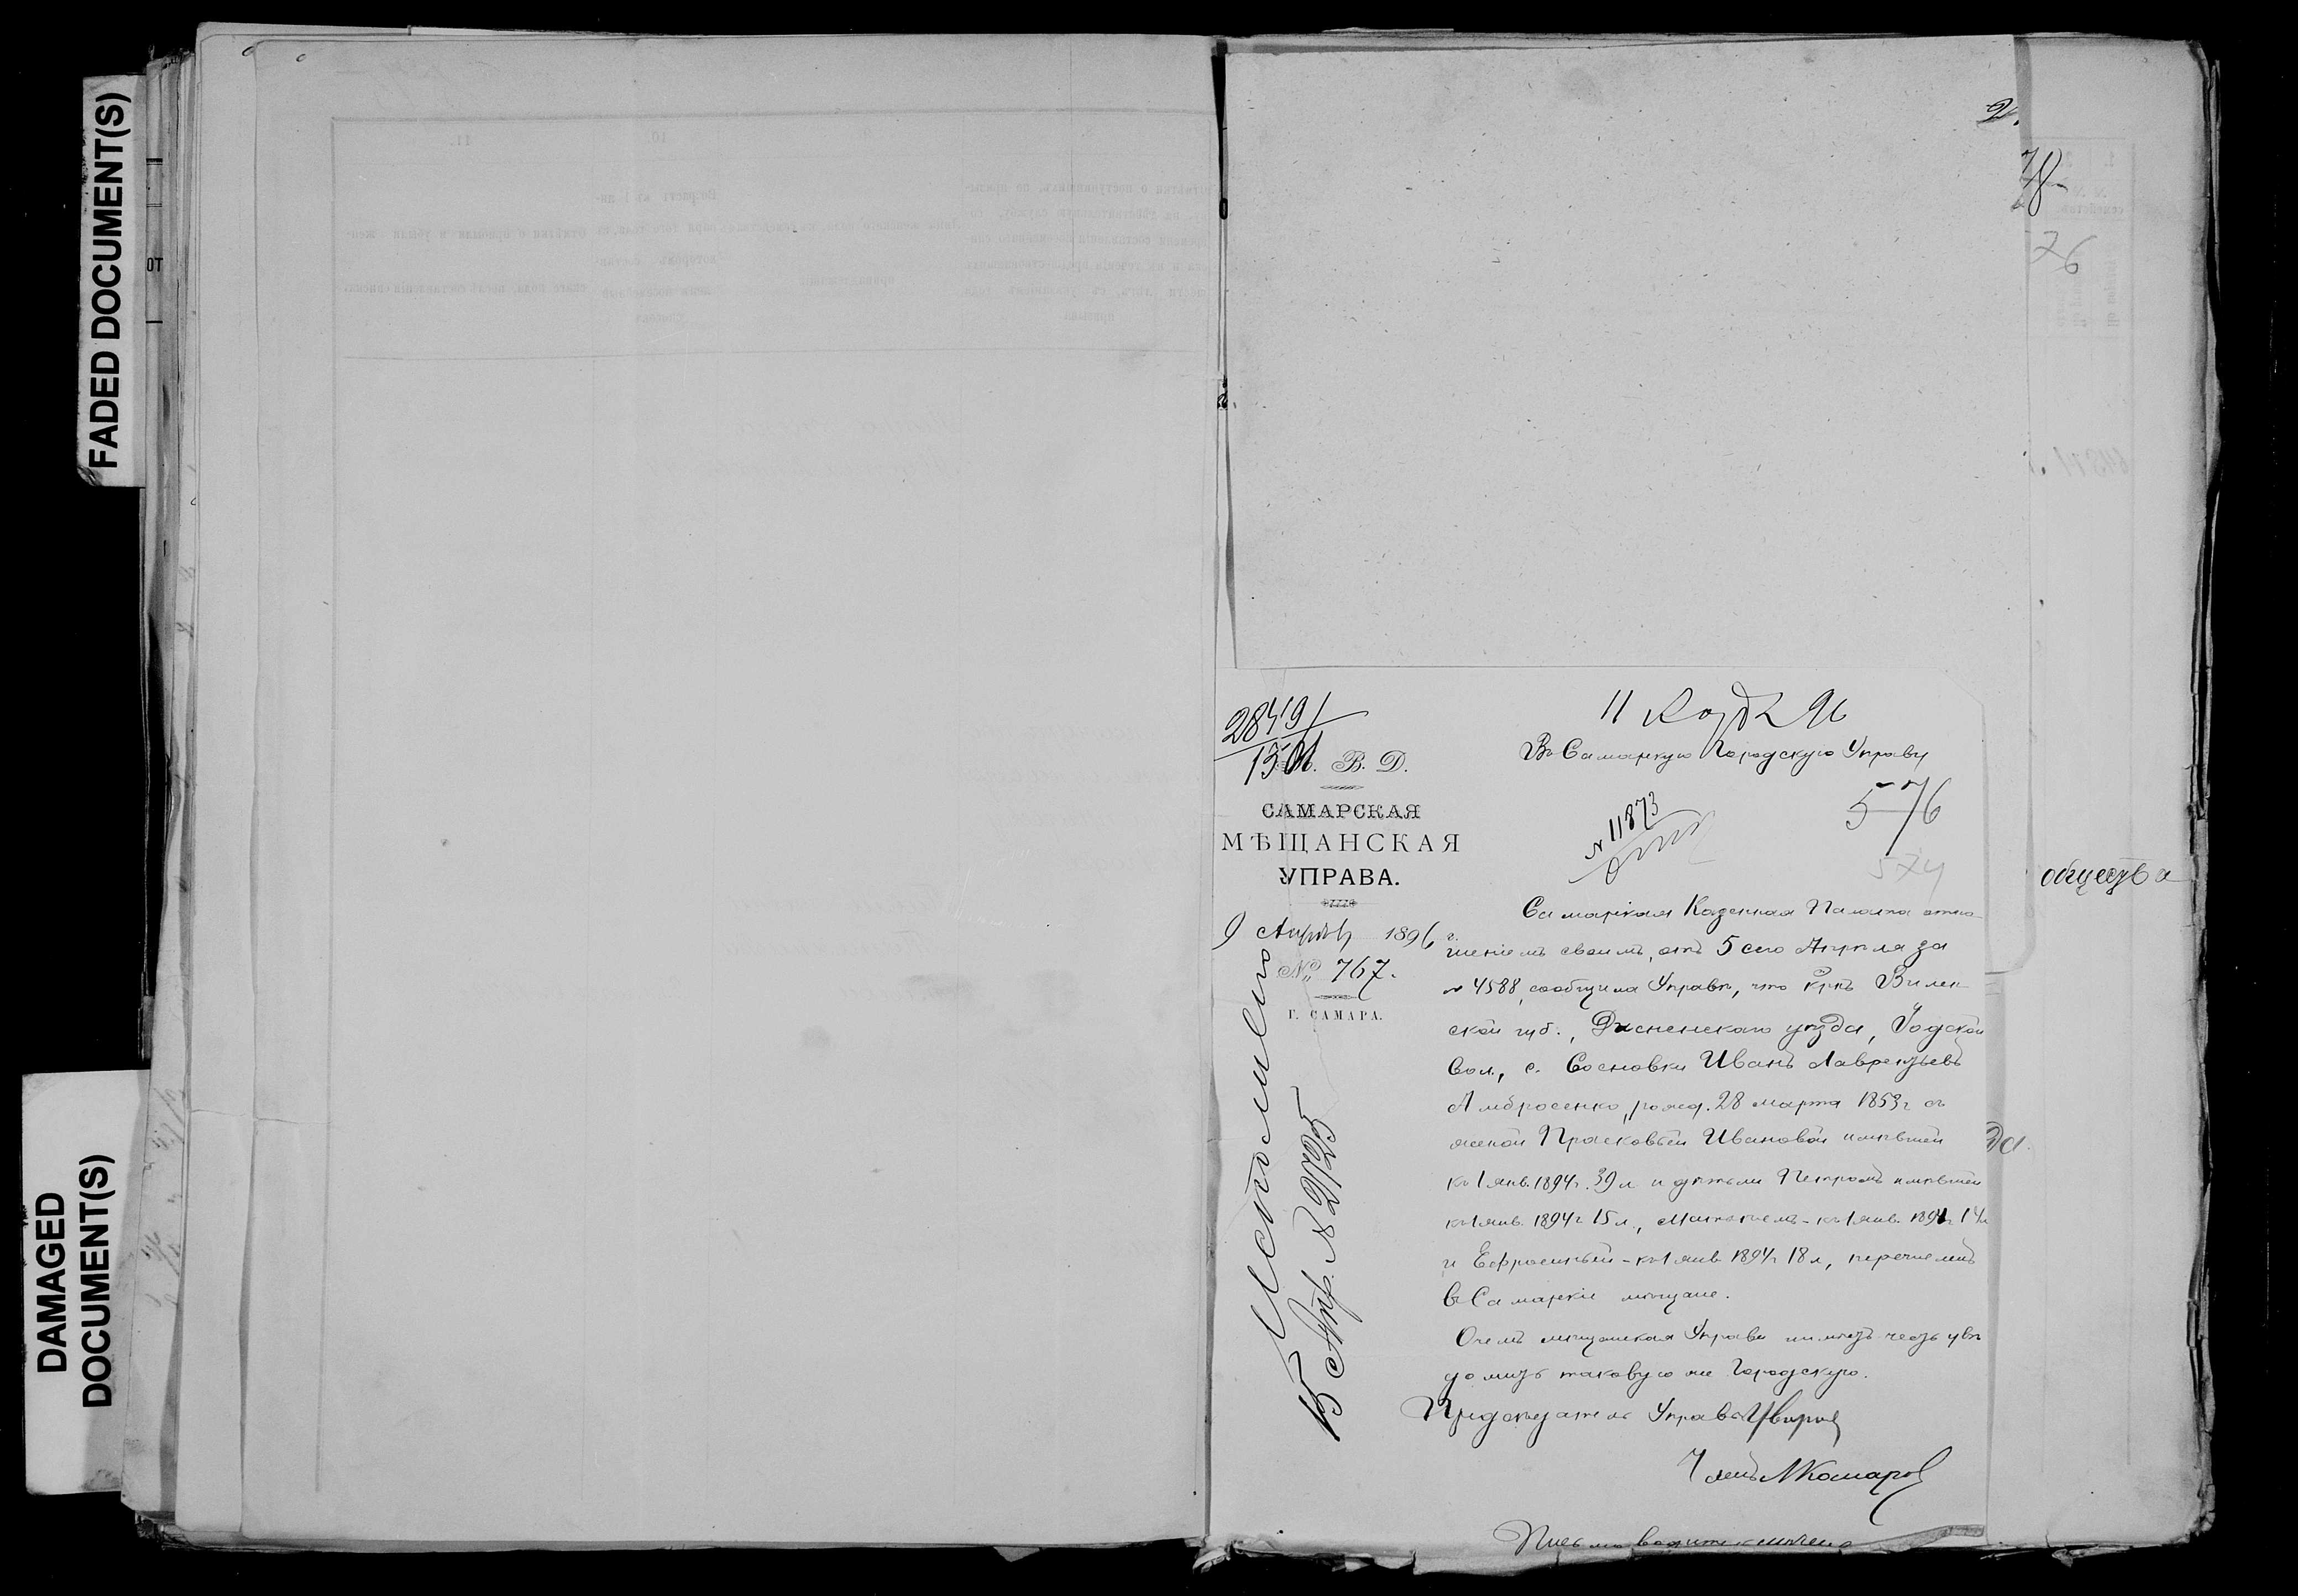 FADED DOCUMENT(S)
DAMAGED
DOCUMENT(S)
11.
10
2.
78
76
28491
13
М. В. Д.
САМАРСКАЯ
МѢЩАНСКАЯ
УПРАВА.
9 Апрѣля 1896 г.
№ 767.
Г. САМАРА.
Исполнено
15 Апр. № 2725
96
Въ Самарскую Городскую Управу
№ 11873
576
574
Самарская Казенная Палата отно-
шеніемъ своимъ, отъ 5 сего Апрѣля за
№ 4588, сообщила Управѣ, что кр-нъ Вилен
ской губ., Дисненскаго уѣзда, Іодской
вол., с. Сосновки Иванъ Лаврентьевъ
Амбросенко, рожд. 28 марта 1853 г. съ
женой Прасковьей Ивановой имѣвшей
къ 1 янв. 1894 г. 39 л и дѣтьми Петромъ имѣвшем
къ 1 янв. 1894 г 15 л., къ 1 янв. 1894 г 14 л
и Ефросиньей - къ 1 янв 1894 г 18 л, перечисленъ
въ Самарскіе мѣщане.
О чемъ мѣщанская Управа имѣетъ честь увѣ
домить таковую же Городскую.
Предсѣдатель Управы
Членъ Комаровъ
общества
да.